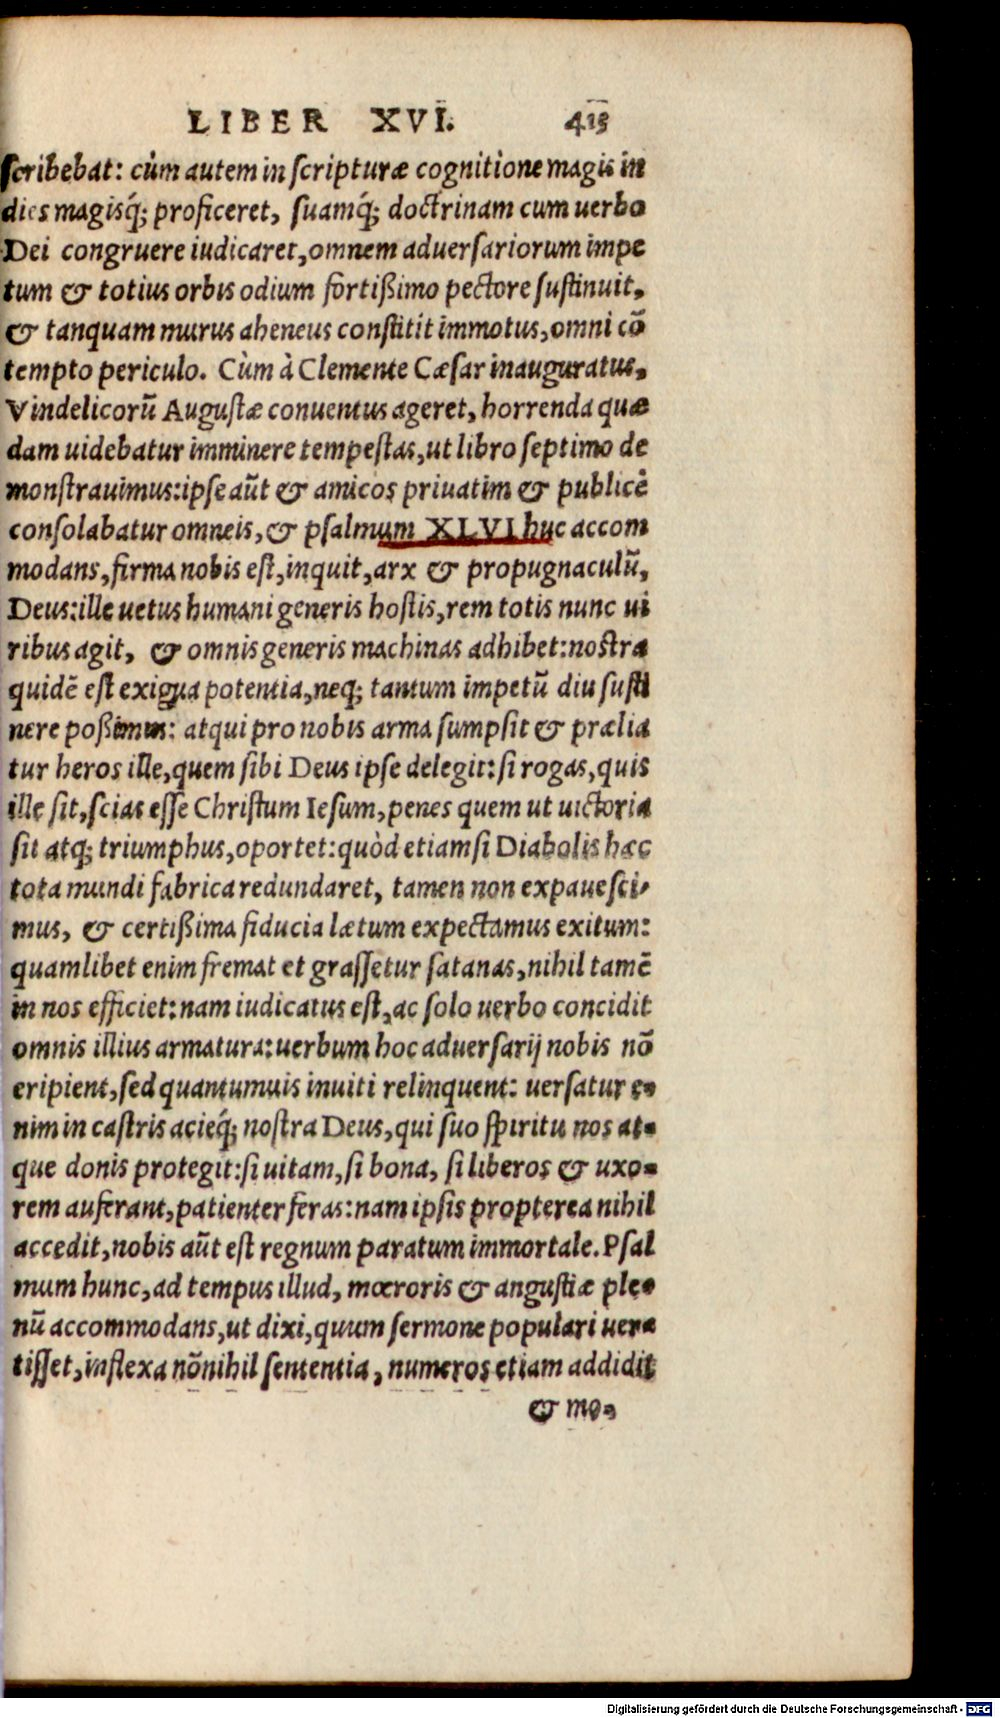 LIBER XVI. 415
scribebat: cùm autem in scripturæ cognitione magis in
dies magisq́; proficeret, suamq́; doctrinam cum uerbo
Dei congruere iudicaret, omnem aduersariorum impe
tum & totius orbis odium fortißimo pectore sustinuit,
& tanquam murus aheneus constitit immotus, omni cō
tempto periculo. Cùm à Clemente Cæsar inauguratus,
Vindelicorũ Augustæ conuentus ageret, horrenda quæ
dam uidebatur imminere tempestas, ut libro septimo de
monstrauimus: ipse aũt & amicos priuatim & publicè
consolabatur omneis, & psalmum XLVI huc accom
modans, firma nobis est, inquit, arx & propugnaculũ,
Deus: ille uetus humani generis hostis, rem totis nunc ui
ribus agit, & omnis generis machinas adhibet: nostra
quidẽ est exigua potentia, neq; tantum impetũ diu susti
nere poßimus: atqui pro nobis arma sumpsit & prælia
tur heros ille, quem sibi Deus ipse delegit: si rogas, quis
ille sit, scias esse Christum Iesum, penes quem ut uictoria
sit atq; triumphus, oportet: quòd etiamsi Diabolis hæc
tota mundi fabrica redundaret, tamen non expauesci-
mus, & certißima fiducia lætum expectamus exitum:
quamlibet enim fremat et grassetur satanas, nihil tamẽ
in nos efficiet: nam iudicatus est, ac solo uerbo concidit
omnis illius armatura: uerbum hoc aduersarij nobis nō
eripient, sed quantumuis inuiti relinquent: uersatur e-
nim in castris acieq́; nostra Deus, qui suo spiritu nos at-
que donis protegit: si uitam, si bona, si liberos & uxo-
rem auferant, patienter feras: nam ipsis propterea nihil
accedit, nobis aũt est regnum paratum immortale. Psal
mum hunc, ad tempus illud, mœroris & angustiæ ple-
nũ accommodans, ut dixi, quum sermone populari uer-
tisset, inflexa nōnihil sententia, numeros etiam addidit
& mo-
Digitalisierung gefördert durch die Deutsche Forschungsgemeinschaft - DFG